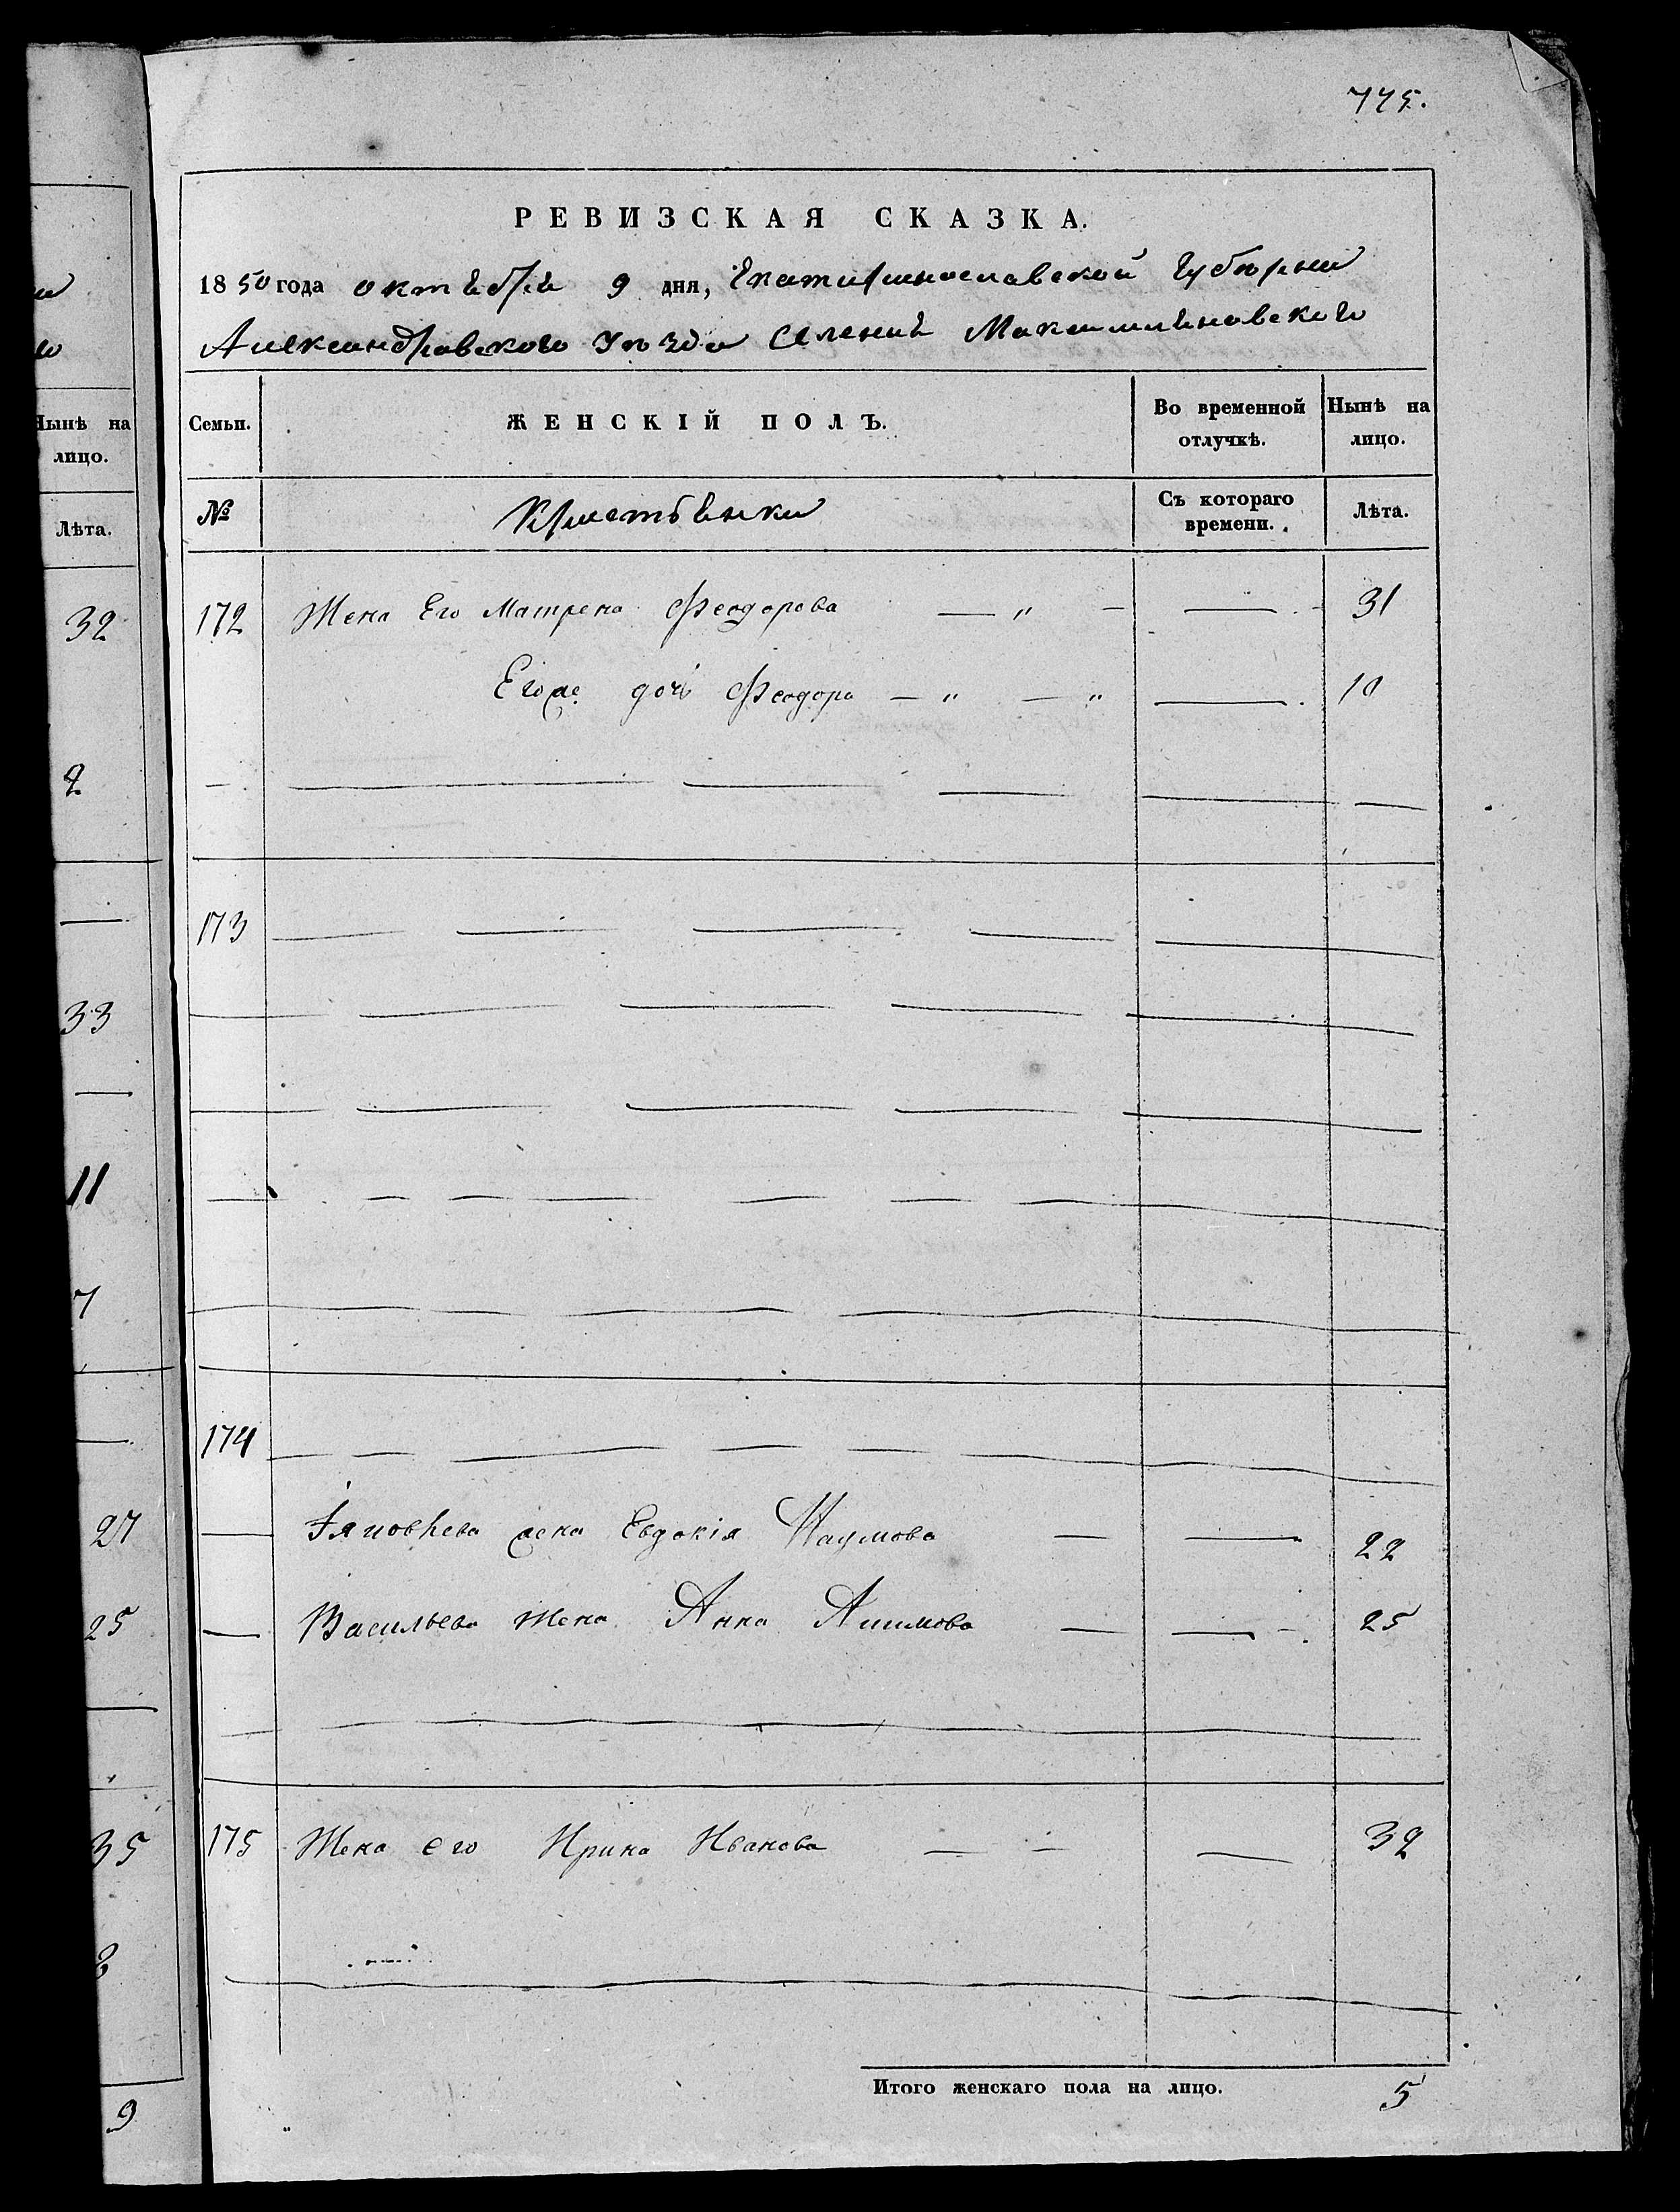 775.
и
ю
Нынѣ на
лицо.
Лѣта.
32
2
33
11
7
27
25
35
3
9
РЕВИЗСКАЯ СКАЗКА.
1850 года октября 9 дня, Екатеринославской Губерніи
Александровского Уѣзда Селенія Максимиляновского
Семьи. ЖЕНСКІЙ ПОЛЪ. Во временной отлучкѣ. Нынѣ на лицо.
№ Крестьянки Съ котораго времени. Лѣта.
172 Жена Его Матрена Феодорова — " — — 31
Егоже дочь Феодора — " — " — 10
173
174
жена Евдокія Наумова — — 22
Васильева жена Анна — — 25
175 Жена его Ирина Иванова — — — 32
Итого женскаго пола на лицо. 5